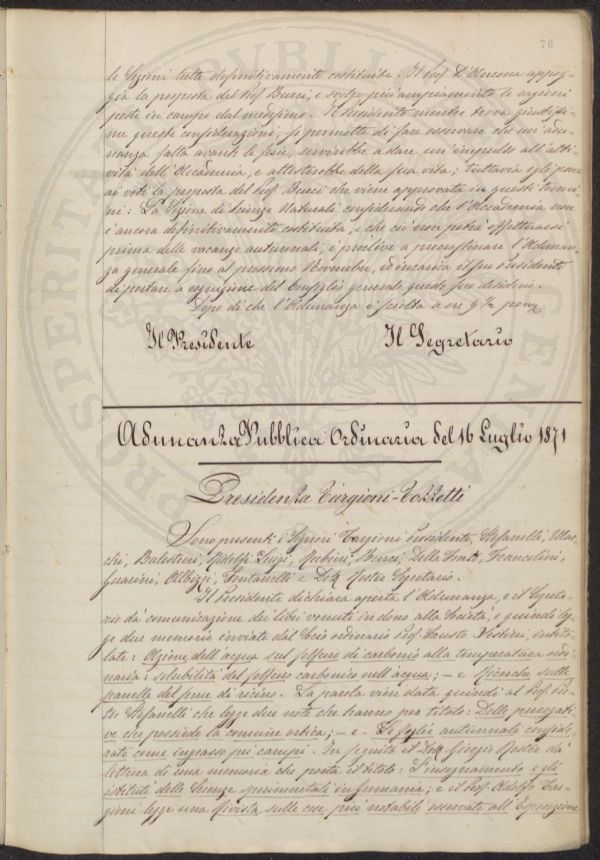 76
le Sezioni tutte definitivamente costituite. Il Prof. D'Ancona appog-
gia la proposta del Prof. Bucci, e svolge più ampiamente le ragioni
poste in campo dal medesimo. Il Presidente mentre trova giustissi-
me queste considerazioni, si permette di fare osservare che un'adu-
nanza fatta avanti le ferie, servirebbe a dare un impulso all'atti-
vità dell'Accademia, e attesterebbe della sua vita; tuttavia egli pone
ai voti la proposta del Prof. Bucci che viene approvata in questi termi-
ni: La Sezione di Scienze Naturali considerando che l'Accademia non
è ancora definitivamente costituita, e che ciò non potrà effettuarsi
prima delle vacanze autunnali, è proclive a procrastinare l'Adunan-
za generale fino al prossimo Novembre, ed incarica il suo Presidente
di portare a cognizione del Consiglio generale questo suo desiderio.
Dopo di che l'Adunanza è sciolta a ore 9 ½ pom.
Il Presidente Il Segretario
Adunanza Pubblica Ordinaria del 16 Luglio 1871
Presidenza Targioni-Tozzetti
Sono presenti i Signori Targioni Presidente, Stefanelli,
Balestrieri, Luigi, Bucci, Della Fonte, Francolini,
Guarini, Albizzi, Fontanelli e Dott. Roster Segretario.
Il Presidente dichiara aperta l'Adunanza, e il Segreta-
rio dà comunicazione dei libri venuti in dono alla Società, e quindi leg-
ge due memorie inviate dal Socio ordinario Prof. Fausto Sestini, intito-
late: Azione dell'acqua sul solfuro di carbonio alla temperatura ordi-
naria: solubilità del solfuro carbonico nell'acqua; – e Ricerche sulle
panelle del seme di ricino. La parola vien data quindi al Prof. Pie-
tro Stefanelli che legge due note che hanno per titolo: Delle prerogati-
ve che possiede la comune ortica; – e – Le foglie autunnali conside-
rate come ingrasso pei campi. In seguito il Dott. Giorgio Roster dà
lettura di una memoria che porta il titolo: L'insegnamento e gli
istituti delle Scienze sperimentali in Germania; e il Prof. Adolfo Tar-
gioni legge una Rivista sulle cose più notabili osservate all'Esposizione